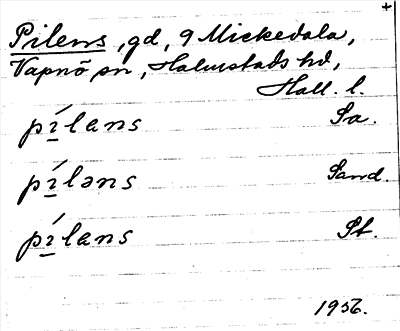 +
Pilens, gd, 9 Mickedala,
Vapnö sn, Halmstads hd,
Hall. l.
pílans Sa.
píləns Sand.
pílans St.
1956.